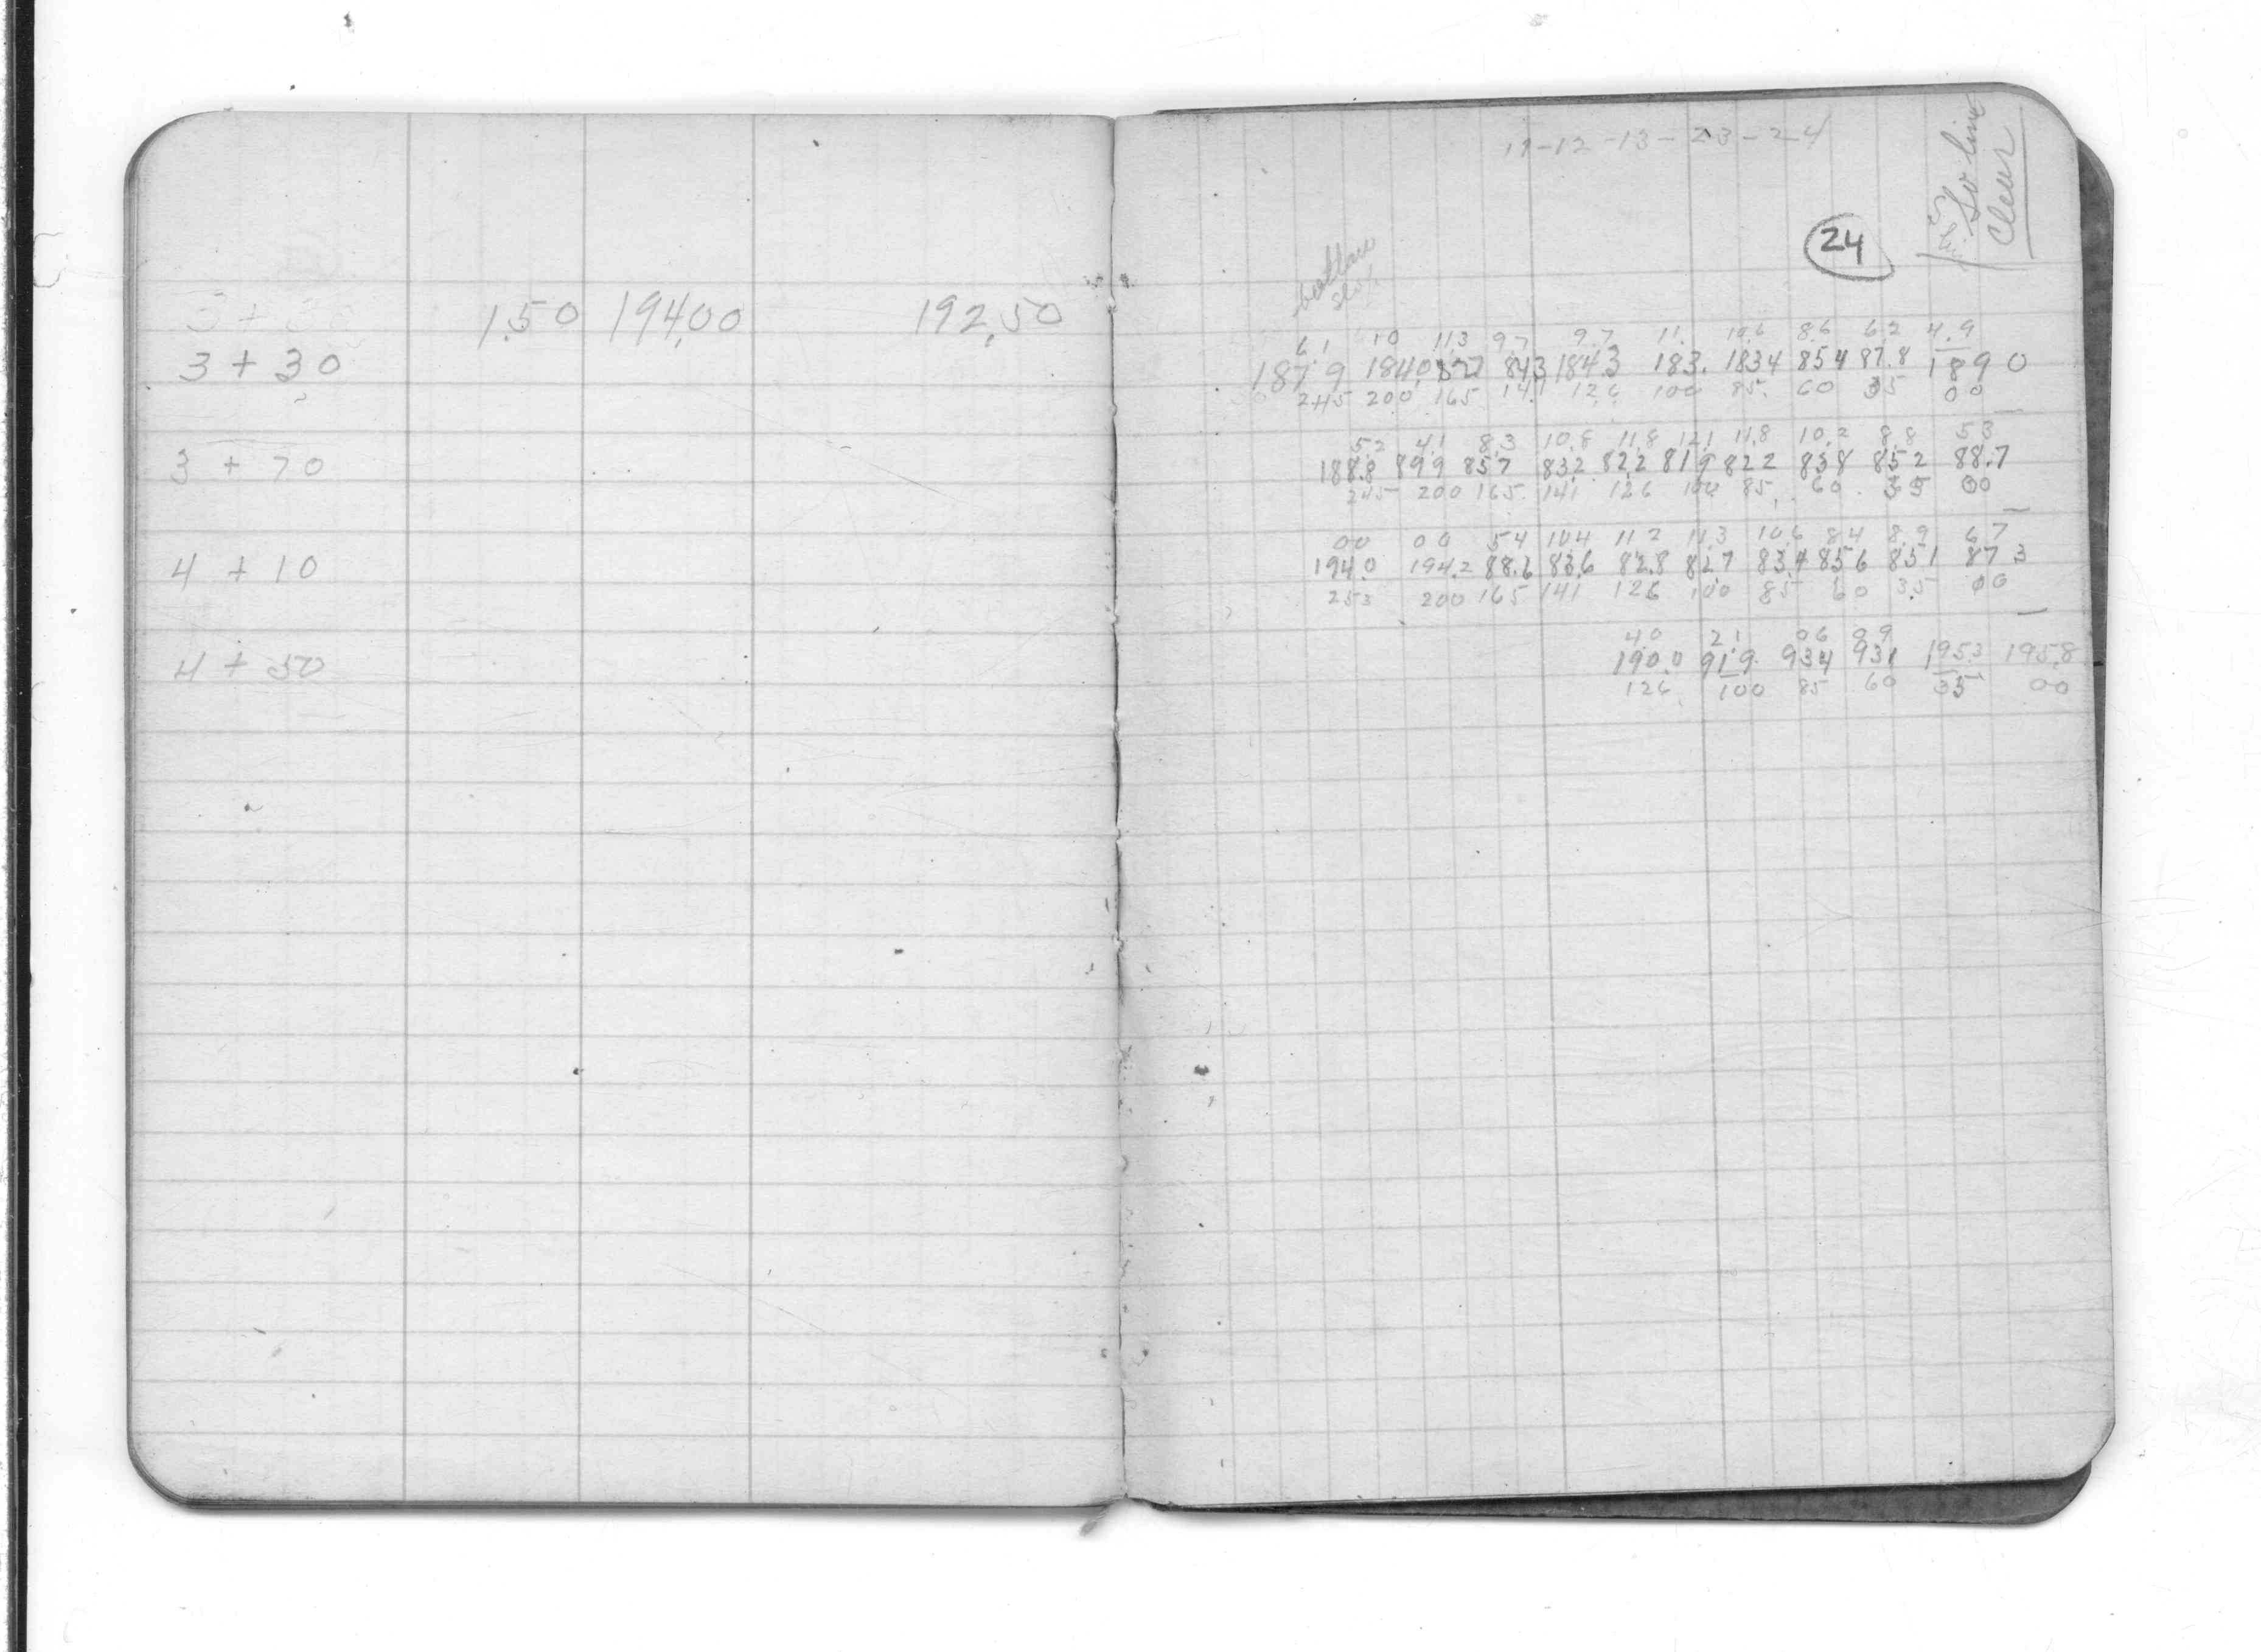 1.50 194.00 192.50
3 + 30
3 + 70
4 + 10
4 + 50
11-12-13-23-24
So line
Clear
24
6.1 10 11.3 9.7 9.7 11. 10.6 8.6 6.2 4.9
187.9 184.0 827 843 184.3 183. 1834 854 87.8 189 0
245 200 165 141 126 100 85. 60 35 00
5.2 4.1 8.3 10.8 11.8 12.1 11.8 10.2 8.8 53
188.8 899 857 832 822 819 822 838 852 88.7
245 200 165 141 126 100 85 60 35 00
00 00 54 104 112 11.3 10.6 84 8.9 67
194.0 194.2 88.6 83.6 82.8 82.7 83.4 856 851 87 3
253 200 165 141 126 100 85 60 35 00
40 2.1 06 09
190.0 91.9 934 931 195.3 195.8
126 100 85 60 35 00